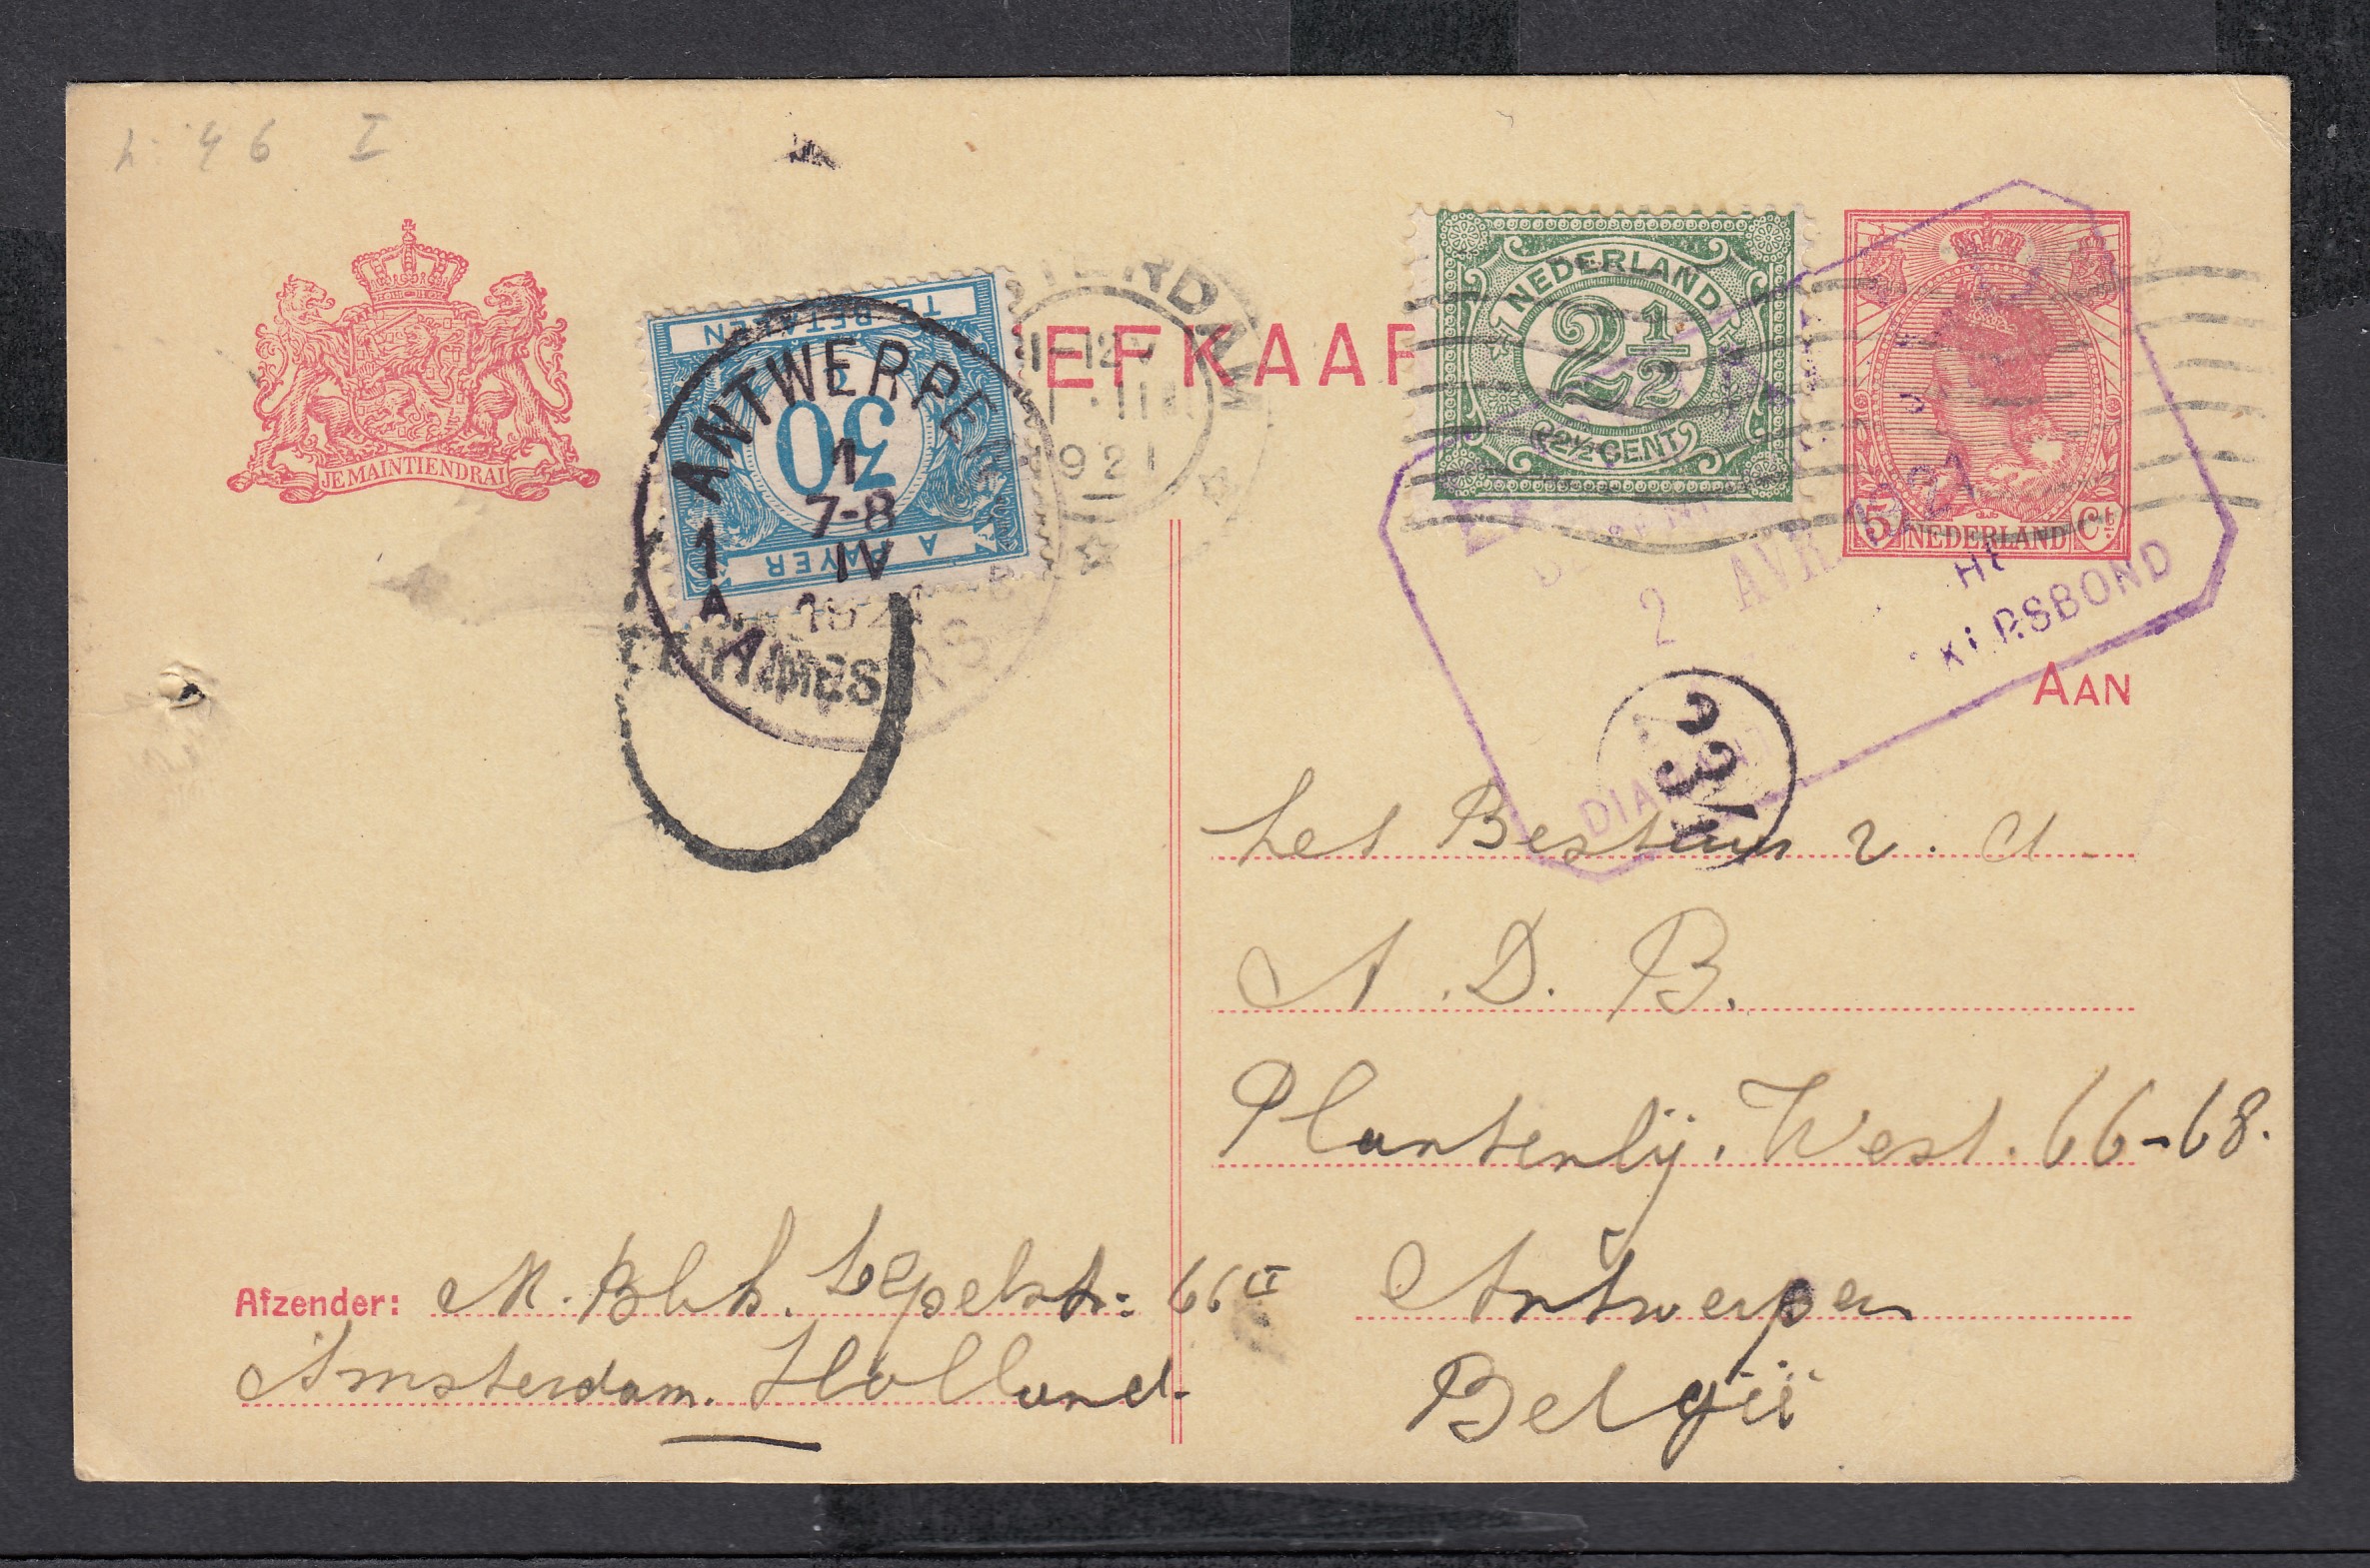 46 I
JE MAINTIENDRAI
TE BETALEN
30
A PAYER
ANTWERPEN
1
7-8
IV
1
A
1921
CENTIMES
TERDAM
11-12 V
III
921
EFKAAR
NEDERLAND
2½
2½ CENT
5 NEDERLAND Ct.
2 AVR 1921
KERSBOND
DIAMANT
AAN
23
Het Bestuur v. d.
A. D. B.
Plantenlij. West. 66-68.
Antwerpen
België
Afzender: M. Blik. Lepelstr: 66 II
Amsterdam. Holland.